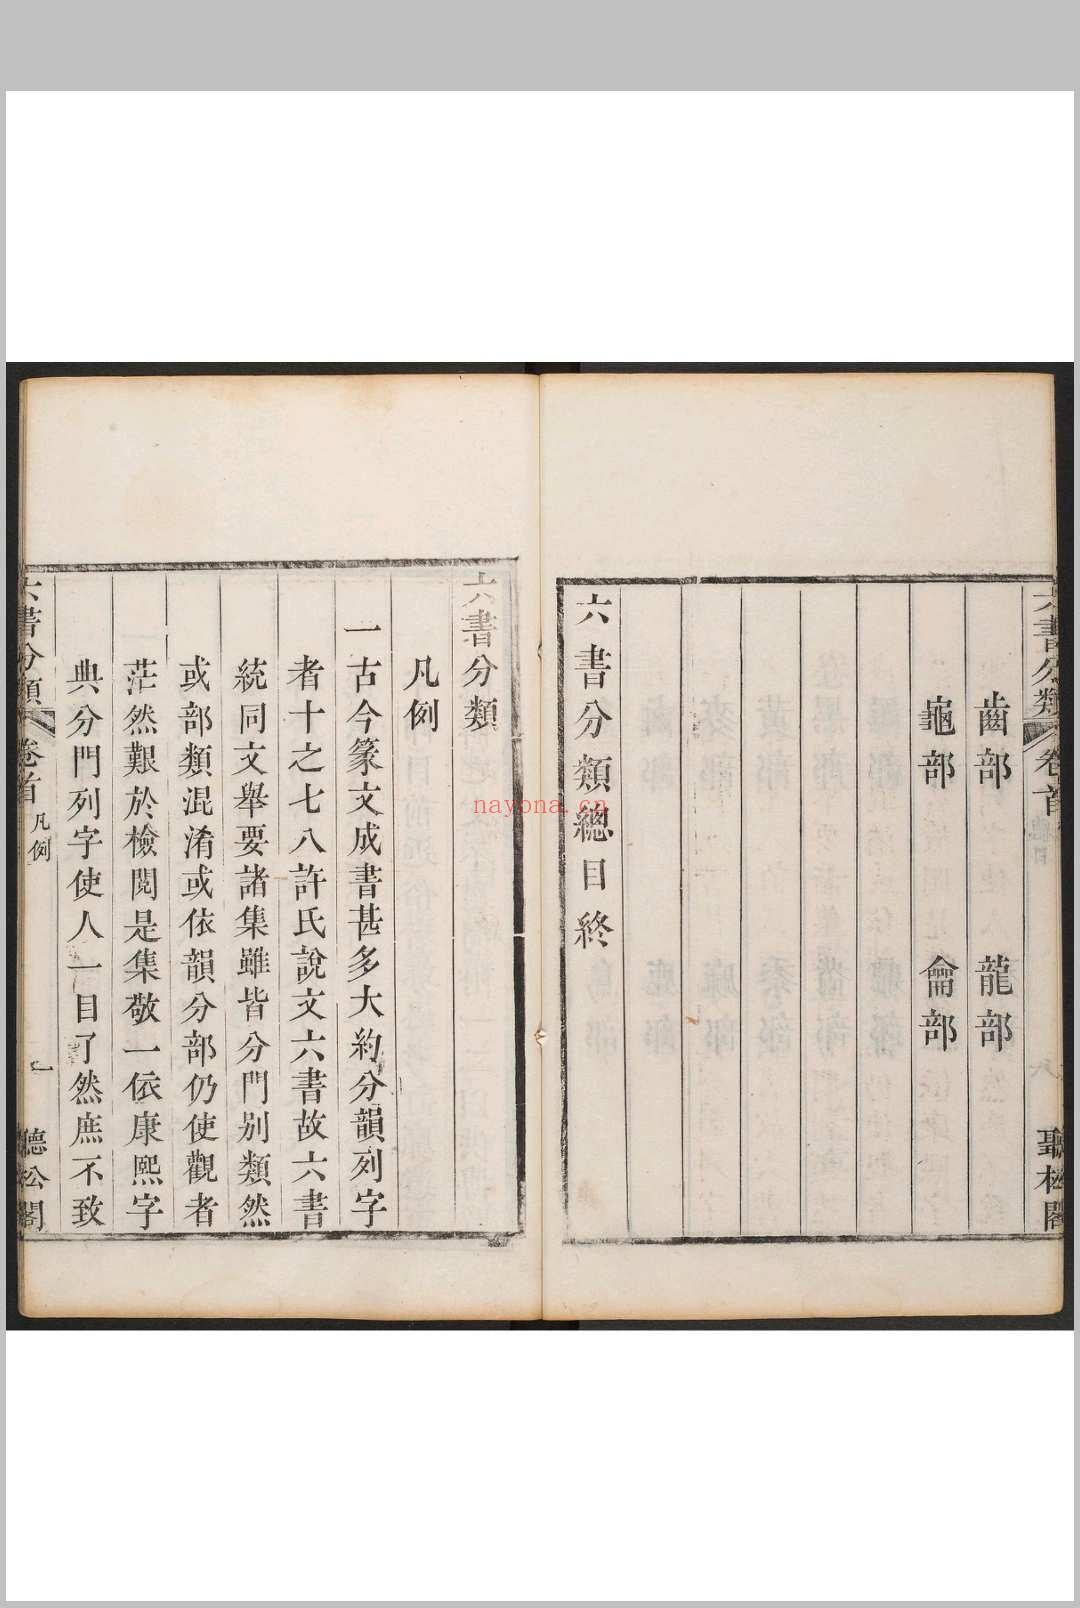 六書分類
卷首
總目
六
聽松閣
齒部
龍部
龜部
龠部
六書分類總目終
六書分類
凡例
一古今篆文成書甚多大約分韻列字
者十之七八許氏說文六書故六書
統同文舉要諸集雖皆分門別類然
或部類混淆或依韻分部仍使觀者
茫然艱於檢閱是集敬一依康熙字
典分門列字使人一目了然庶不致
六書分類
卷首
凡例
一
聽松閣
nayona.cn